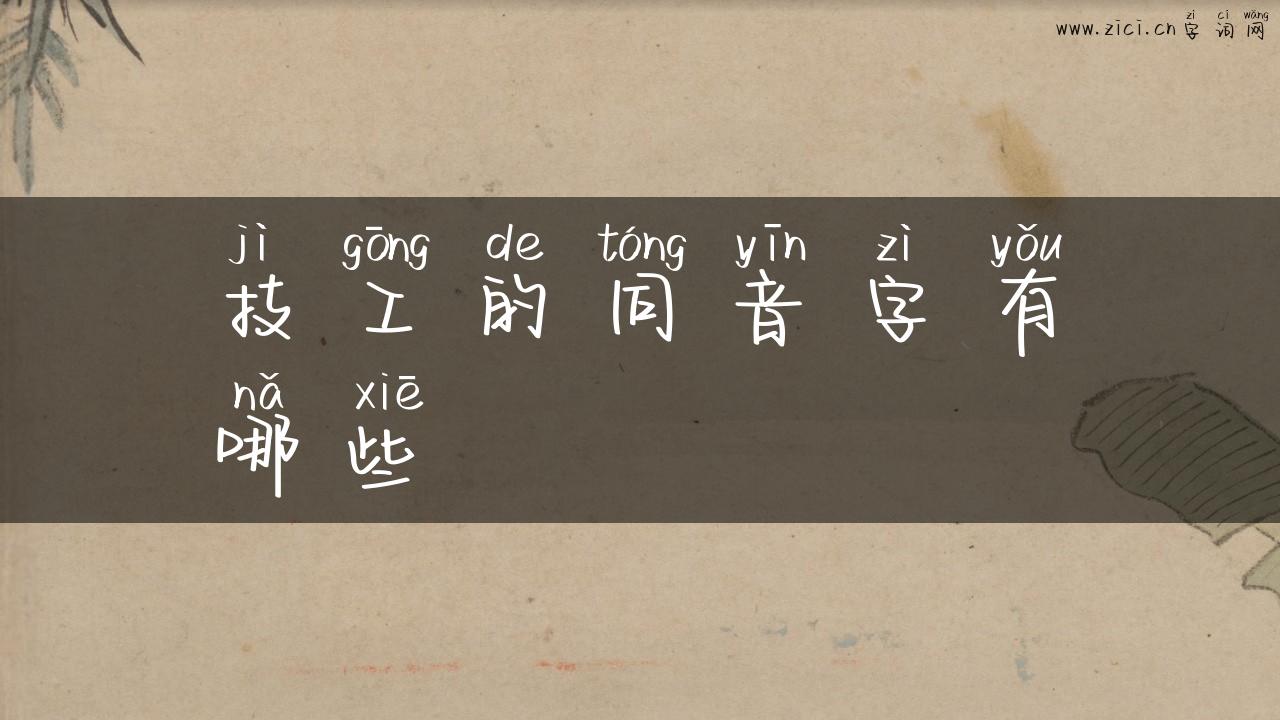 zì cí wǎng
www.zici.cn 字 词 网
jì gōng de tóng yīn zì yǒu
技 工 的 同 音 字 有
nǎ xiē
哪 些